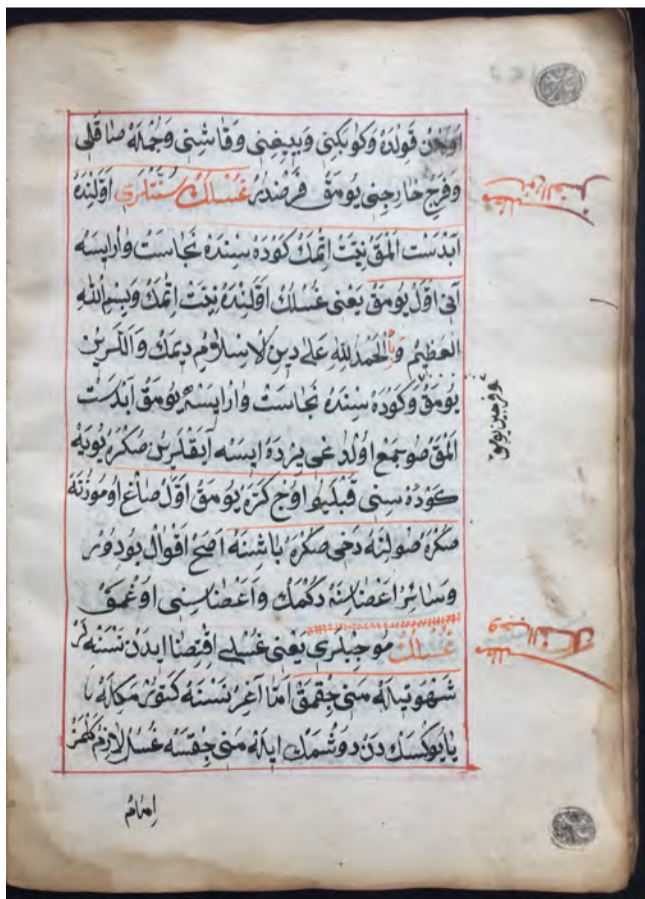 اوچن قولده وكوبكنى وبييغنى وقاشنى وجمله صاقلى
وفرج خارجنى يومق فرضدر غسلك سنتلرى اوّلنده
آبدست المق نيّت اتمك كوده سنده نجاست وارايسه
آنى اوّل يومق يعنى غسلك اوّلنده نيّت اتمك وبسم الله
العظيم والحمد لله على دين الاسلام ديمك واللرين
يومق وكوده سنده نجاست وارايسه يومق آبدست
المق صوجمع اولدغى يرده ايسه آيقلرين صكره يويه
كوده سنى قپليو اوچ كرّه يومق اوّل صاغ اوموزنه
صكره صولنه دخى صكره باشنه اصحّ اقوال بودور
وسائر اعضاسنه دكمك واعضاسنى اوغمق
غسلك موجبلرى يعنى غسلى اقتضا ايدن نسنه لر
شهوتيله منى چقمق امّا آغر نسنه كتورمكله يا
يا يوكسك دن دوشمك ايله منى چقسه غسل لازم كلمز
وفرجين يومق
امام